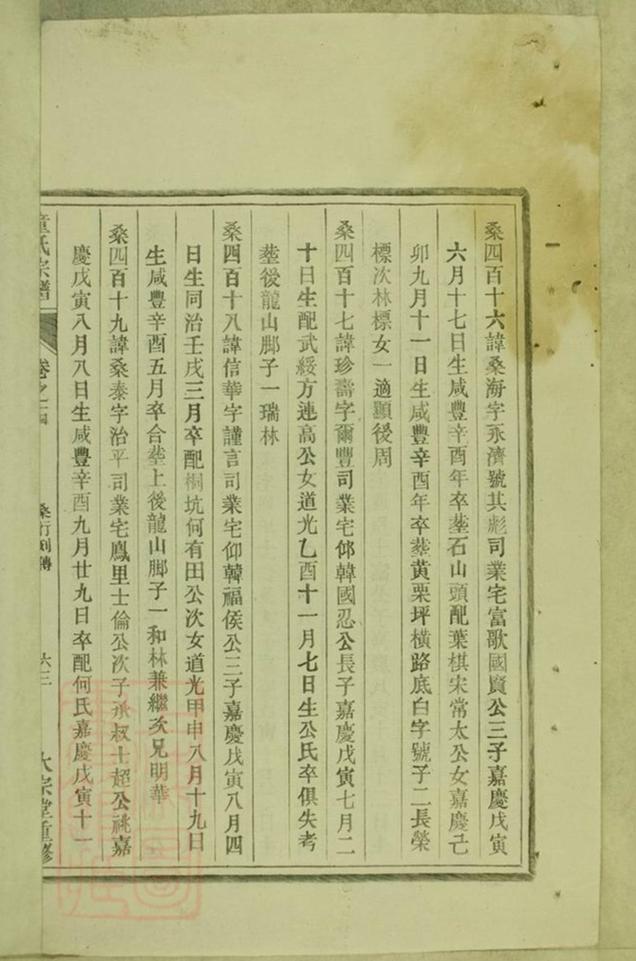 桑四百十六諱桑海字永濟號其彪司業宅富歌國賢公三子嘉慶戊寅
六月十七日生咸豐辛酉年卒塟石山頭配葉棋宋常太公女嘉慶己
卯九月十一日生咸豐辛酉年卒塟黄栗坪橫路底白字號子二長榮
標次林標女一適顯後周
桑四百十七諱珍壽字爾豐司業宅仰韓國忍公長子嘉慶戊寅七月二
十日生配武綏方連高公女道光乙酉十一月七日生公氏卒俱失考
塟後龍山脚子一瑞林
桑四百十八諱信華字謹言司業宅仰韓福侯公三子嘉慶戊寅八月四
日生同治壬戌三月卒配桐坑何有田公次女道光甲申八月十九日
生咸豐辛酉五月卒合塟上後龍山脚子一和林兼繼次兄明華
桑四百十九諱桑泰字治平司業宅鳳里士倫公次子承叔士超公祧嘉
慶戊寅八月八日生咸豐辛酉九月廿九日卒配何氏嘉慶戊寅十一
童氏宗譜 卷之 桑行列傳 六三 大宗堂重修